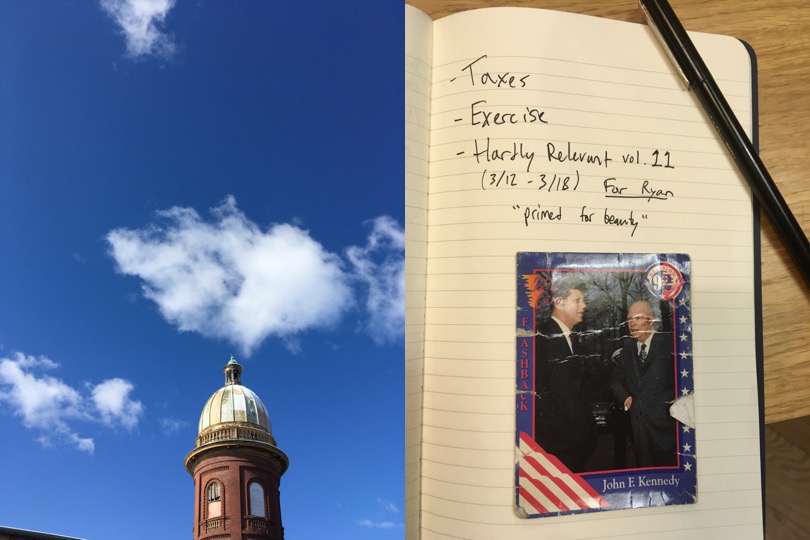 - Taxes
- Exercise
- Hardly Relevant vol. 11
(3/12 - 3/18) For Ryan
"primed for beauty"
92
FLASHBACK
John F. Kennedy